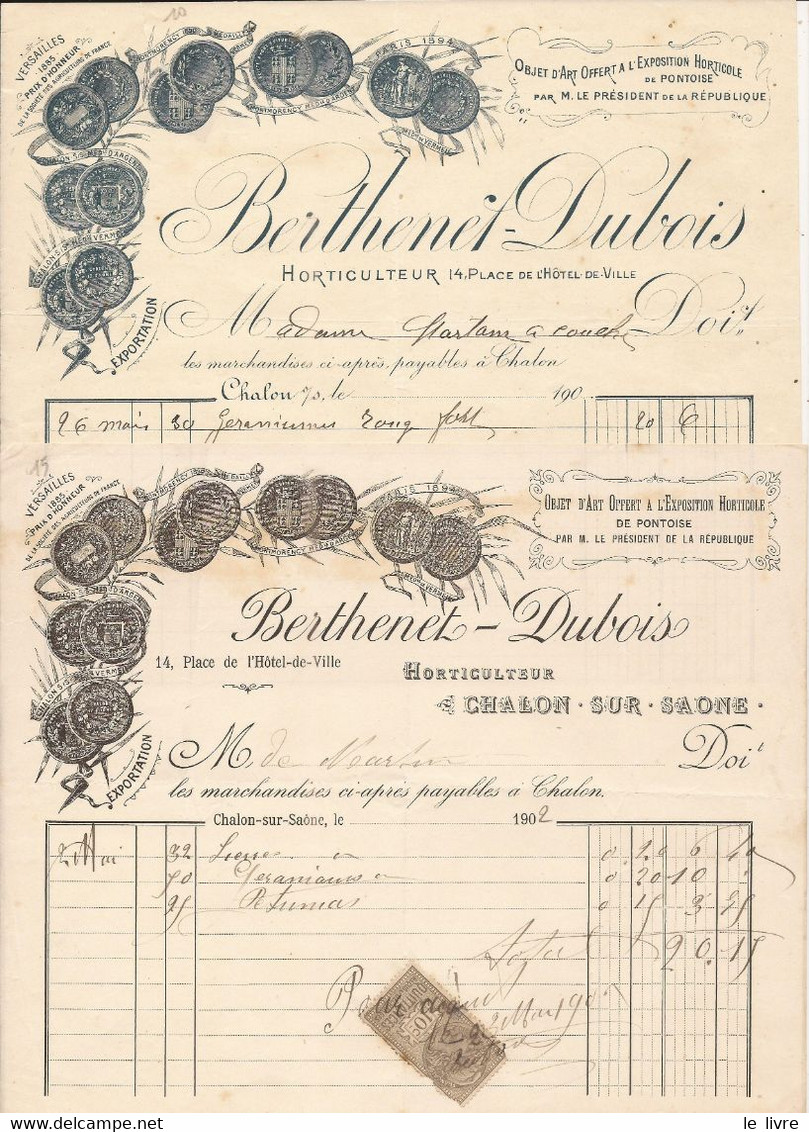 10
VERSAILLES
1885
PRIX D'HONNEUR
DE LA SOCIÉTÉ DES AGRICULTEURS DE FRANCE
MONTMORENCY
MÉDAILLE
PARIS 1894
MONTMORENCY MED D'ARGENT
MED VERMEIL
CHALON S/S MED D'ARGENT
CHALON S/S MED VERMEIL
EXPORTATION
OBJET D'ART OFFERT A L'EXPOSITION HORTICOLE
DE PONTOISE
PAR M. LE PRÉSIDENT DE LA RÉPUBLIQUE
Berthenet-Dubois
HORTICULTEUR 14, PLACE DE L'HÔTEL-DE-VILLE
Madame Doit
les marchandises ci-après, payables à Chalon
Chalon s/s, le 190
26 mai 30 Geraniums 20 6
15
VERSAILLES
1885
PRIX D'HONNEUR
DE LA SOCIÉTÉ DES AGRICULTEURS DE FRANCE
MONTMORENCY
MÉDAILLE
PARIS 1894
MONTMORENCY MED D'ARGENT
MED VERMEIL
CHALON S/S MED D'ARGENT
CHALON S/S MED VERMEIL
EXPORTATION
OBJET D'ART OFFERT A L'EXPOSITION HORTICOLE
DE PONTOISE
PAR M. LE PRÉSIDENT DE LA RÉPUBLIQUE
Berthenet-Dubois
14, Place de l'Hôtel-de-Ville
HORTICULTEUR
CHALON·SUR·SAONE·
M. de Doit
les marchandises ci-après payables à Chalon.
Chalon-sur-Saône, le 1902
2 Mai 32 Lierres 0 20 6 40
50 Geraniums 0 20 10
25 Petunias 0 15 3 75
Total 20.15
Pour acquit
le livre